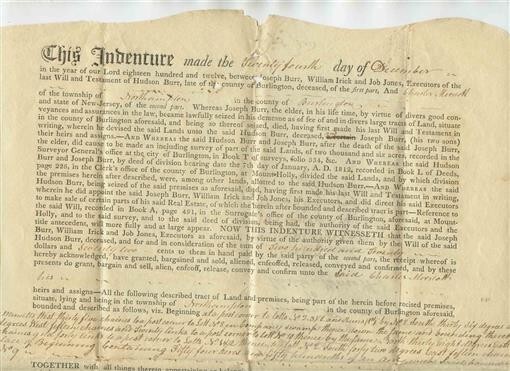 This Indenture made the Twenty fourth day of December
in the year of our Lord eighteen hundred and twelve, between Joseph Burr, William Irick and Job Jones, Executors of the
last Will and Testament of Hudson Burr, late of the county of Burlington, deceased, of the first part, And Charles
of the township of Northampton in the county of Burlington
and state of New-Jersey, of the second part. Whereas Joseph Burr, the elder, in his life time, and by virtue of divers good con-
veyances and assurances in the law, became lawfully seized in his demesne as of fee and in divers large tracts of Land, situate
in the county of Burlington aforesaid, and being so thereof seized, died, having first made his last Will and Testament in
writing, wherein he devised the said Lands unto the said Hudson Burr, deceased, Joseph Burr, (his two sons)
their heirs and assigns,—And Whereas the said Hudson Burr and Joseph Burr, after the death of the said Joseph Burr,
the elder, did cause to be made an including survey of part of the said Lands, of two thousand and six acres, recorded in the
Surveyor General's office at the city of Burlington, in Book T of surveys, folio 334, &c. And Whereas the said Hudson
Burr and Joseph Burr, by deed of division bearing date the 7th day of January, A. D. 1812, recorded in Book L of Deeds,
page 226, in the Clerk's office of the county of Burlington, at Mount-Holly, divided the said Lands, and by which division
the premises herein after described, were, among other lands, allotted to the said Hudson Burr.—And Whereas the said
Hudson Burr, being seized of the said premises as aforesaid, died, having first made his last Will and Testament in writing,
wherein he did appoint the said Joseph Burr, William Irick and Job Jones, his Executors, and did direct his said Executors
to make sale of certain parts of his said Real Estate, of which the herein after bounded and described tract is part—Reference to
the said Will, recorded in Book A, page 491, in the Surrogate's office of the county of Burlington, aforesaid, at Mount-
Holly, and to the said survey, and to the said deed of division, being had, the authority of the said Executors and the
title antecedent, will more fully and at large appear. NOW THIS INDENTURE WITNESSETH that the said Joseph
Burr, William Irick and Job Jones, Executors as aforesaid, by virtue of the authority given them by the Will of the said
Hudson Burr, deceased, and for and in consideration of the sum of Two hundred and Twenty
dollars and cents to them in hand paid by the said party of the second part, the receipt whereof is
hereby acknowledged, have granted, bargained and sold, aliened, enfeoffed, released, conveyed and confirmed, and by these
presents do grant, bargain and sell, alien, enfeoff, release, convey and confirm unto the Said Charles
his
heirs and assigns—All the following described tract of Land and premises, being part of the herein before recited premises,
situate, lying and being in the township of Northampton in the county of Burlington aforesaid,
bounded and described as follows, viz. Beginning
minutes West thirty five chains to a post corner to
degrees West fifteen chains and Twenty links to a post corner to
to a post corner to Lotts
Place of Beginning Containing fifty four acres and
No 9
TOGETHER with all things thereon appertaining or belonging